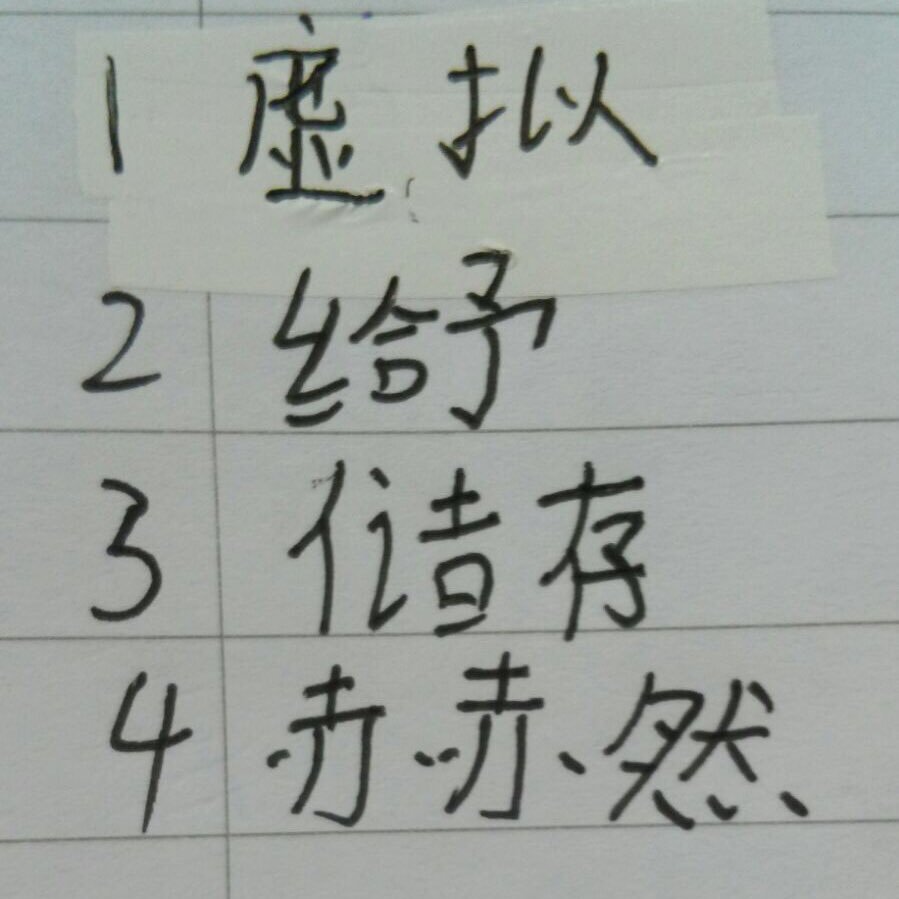 1 虚拟
2 给予
3 储存
4 赤赤然